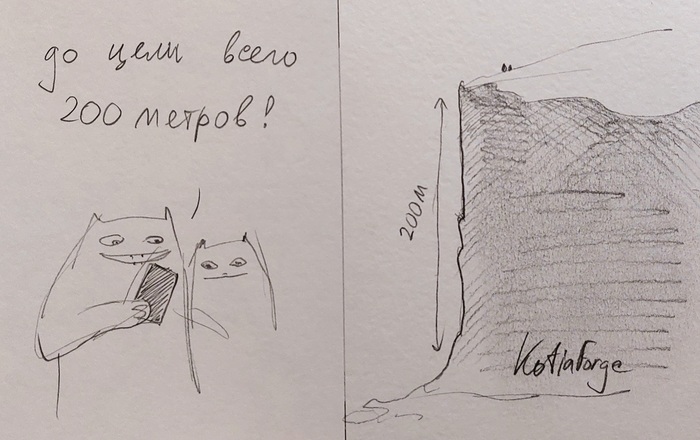 до цели всего
200 метров!
200м
KotiaForge